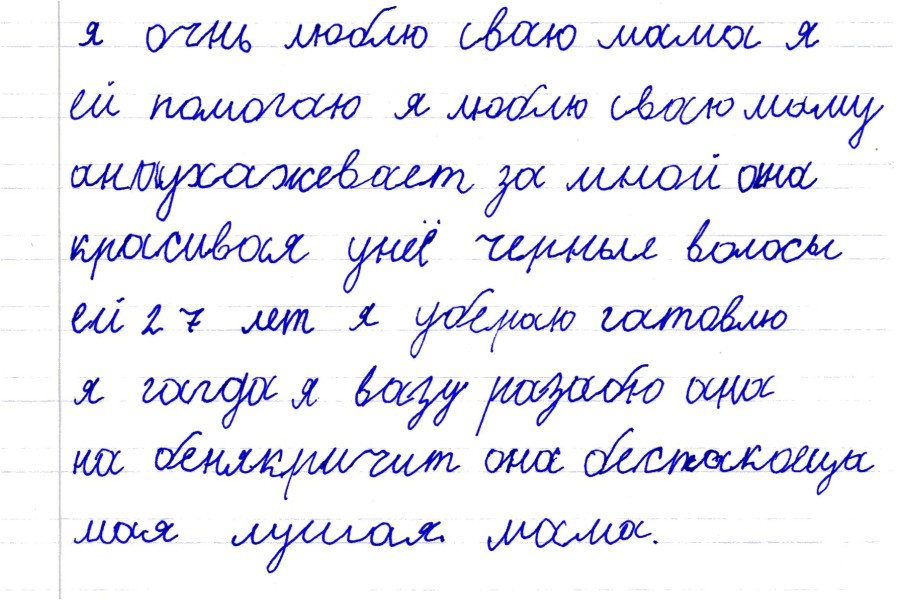 я очнь люблю сваю мама я
ей помогаю я люблю сваю маму
анаухажевает за мной она
красивая унеё черные волосы
ей 27 лет я убераю гатовлю
я гагда я вазу разабю она
на бенякричит она беспакоеца
мая лушая мама.